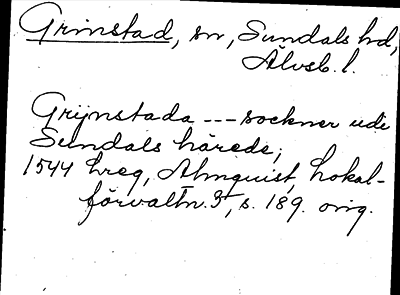 Grinstad, sn, Sundals hd,
Älvsb. l.
Grijnstada --- sockner udi
Sundals härede;
1544 Lreg, Almquist, Lokal-
förvaltn. 3, s. 189. orig.